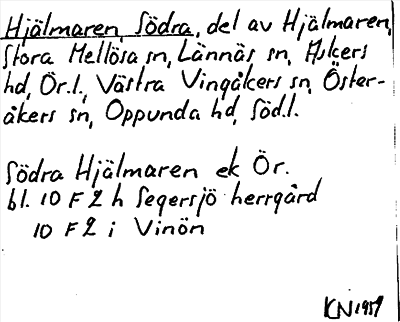 Hjälmaren, Södra, del av Hjälmaren,
Stora Mellösa sn, Lännäs sn, Askers
hd, Ör.l., Västra Vingåkers sn, Öster-
åkers sn, Oppunda hd, Söd.l.
Södra Hjälmaren ek Ör.
bl. 10 F 2 h Segersjö herrgård
10 F 2 i Vinön